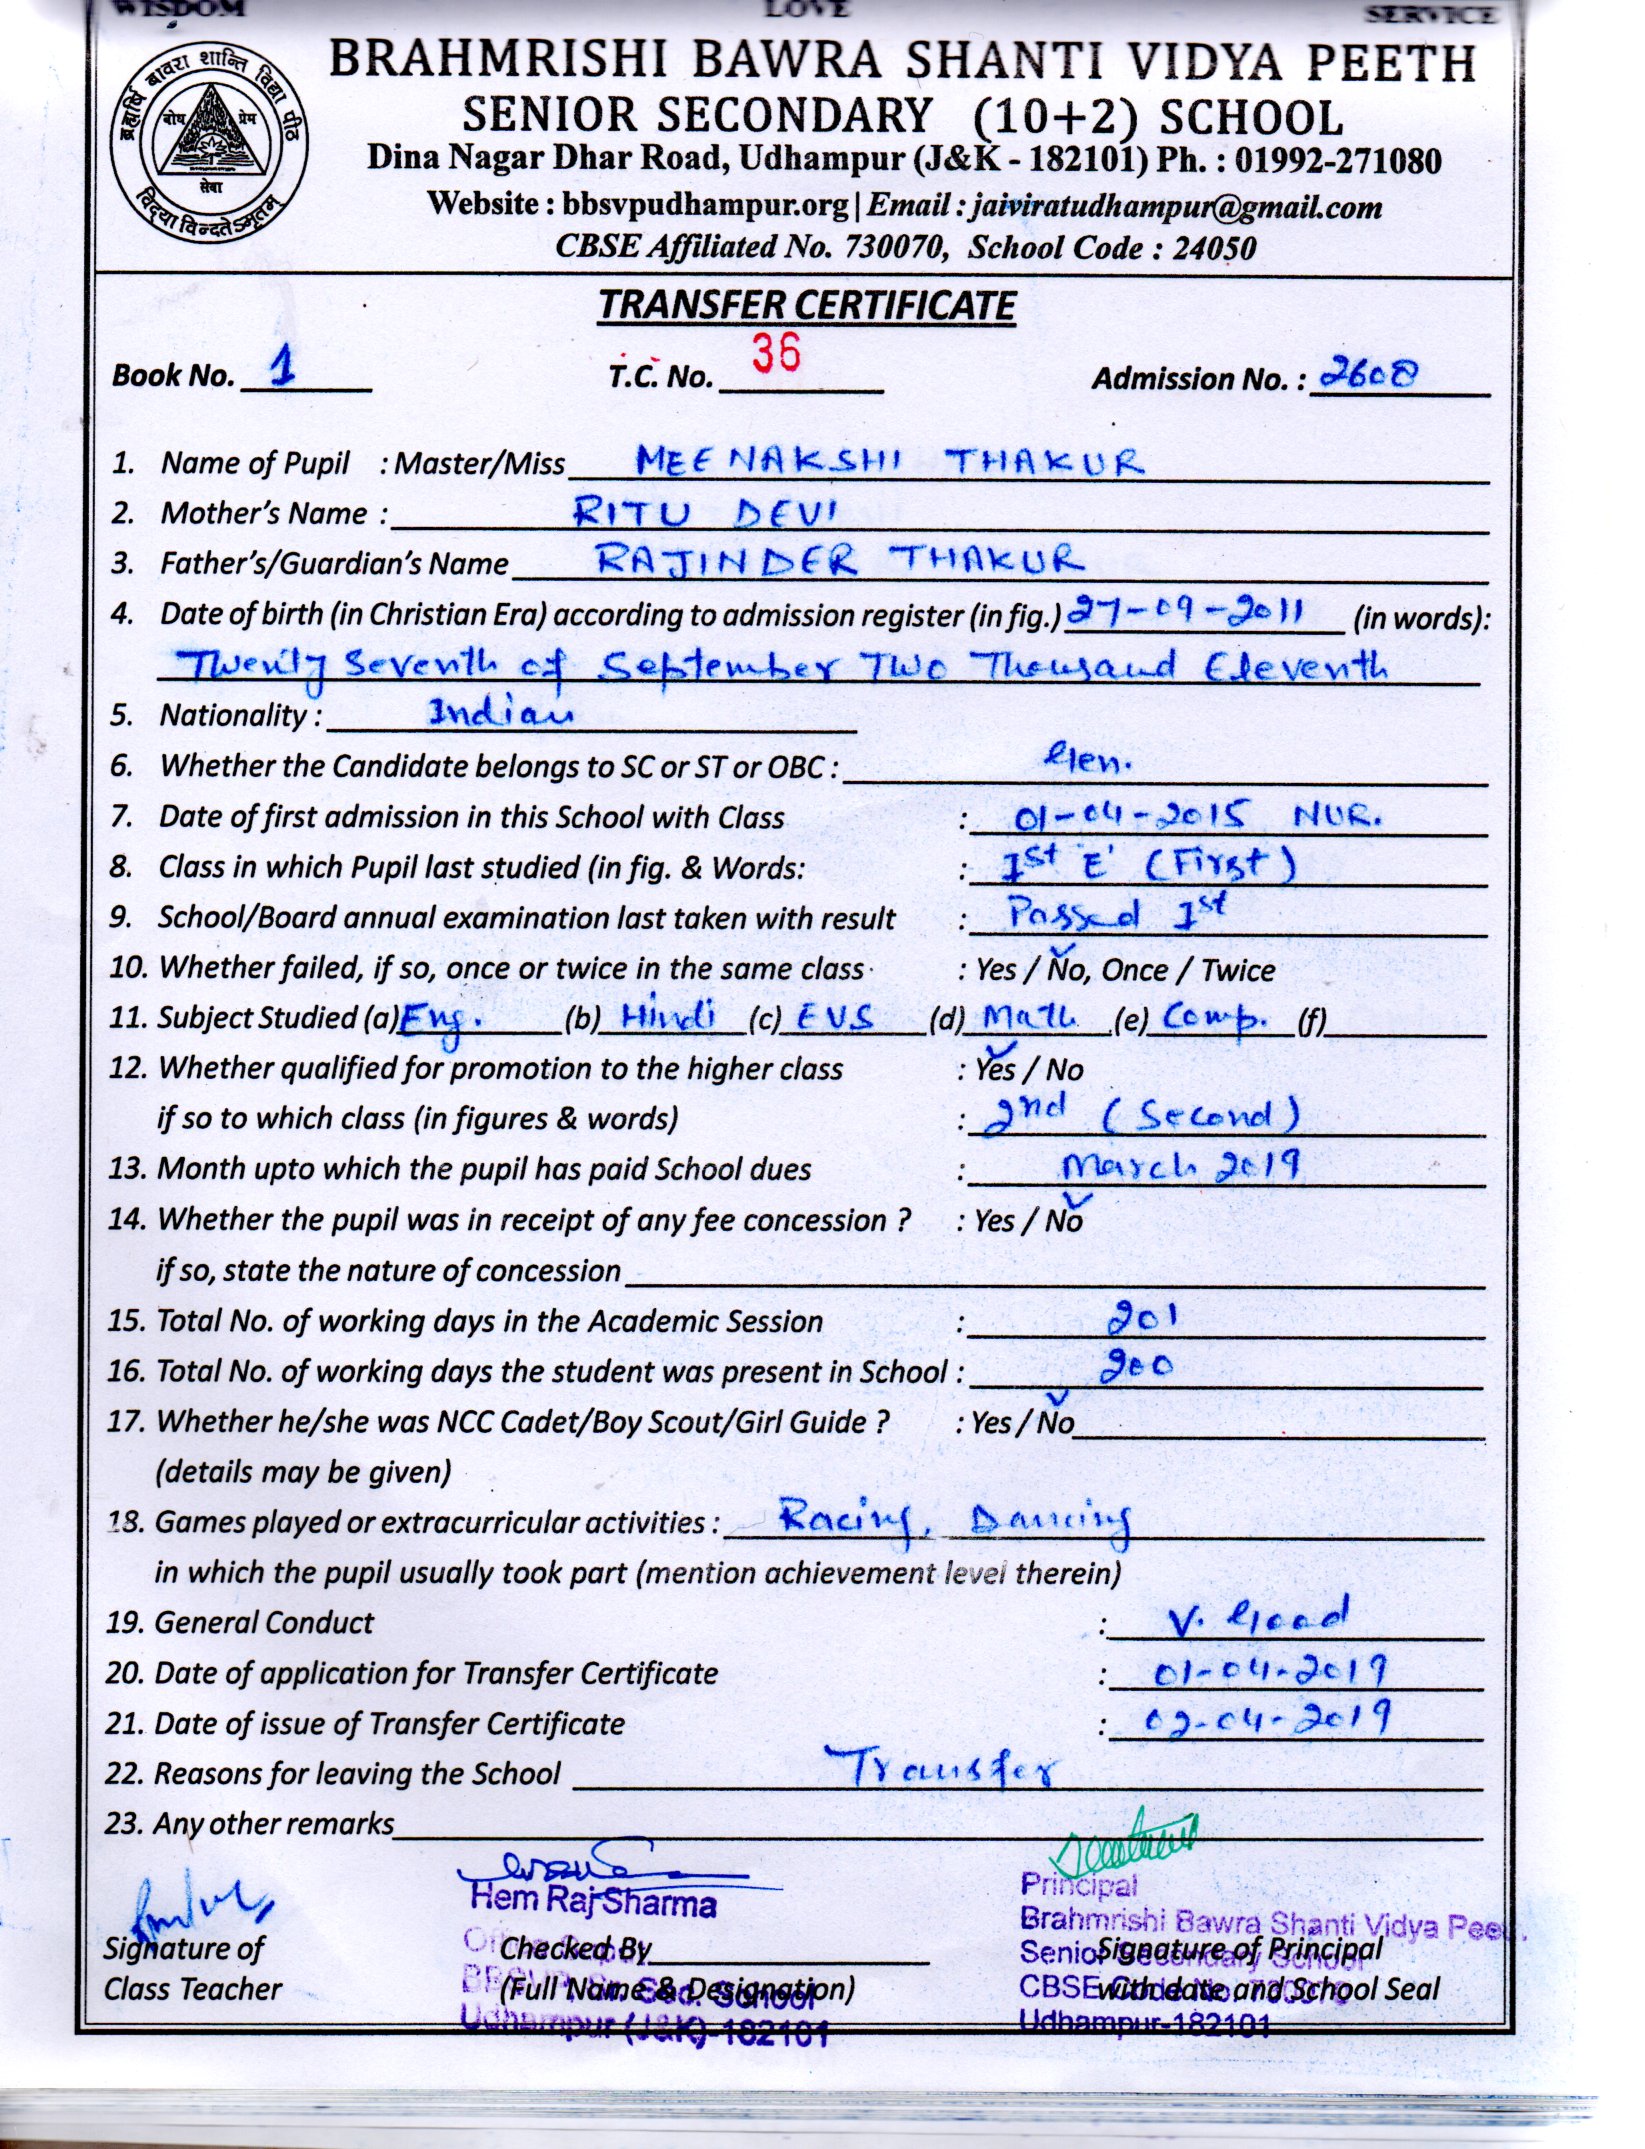 WISDOM LOVE SERVICE
ब्रह्मर्षि बावरा शान्ति विद्या पीठ
बोध प्रेम
सेवा
विद्यया विन्दतेऽमृतम्
BRAHMRISHI BAWRA SHANTI VIDYA PEETH
SENIOR SECONDARY (10+2) SCHOOL
Dina Nagar Dhar Road, Udhampur (J&K - 182101) Ph. : 01992-271080
Website : bbsvpudhampur.org | Email : jaiviratudhampur@gmail.com
CBSE Affiliated No. 730070, School Code : 24050
TRANSFER CERTIFICATE
Book No. 1 T.C. No. 36 Admission No. : 2608
1. Name of Pupil : Master/Miss MEENAKSHI THAKUR
2. Mother's Name : RITU DEVI
3. Father's/Guardian's Name RAJINDER THAKUR
4. Date of birth (in Christian Era) according to admission register (in fig.) 27-09-2011 (in words):
Twenty Seventh of September Two Thousand Eleventh
5. Nationality : Indian
6. Whether the Candidate belongs to SC or ST or OBC : Gen.
7. Date of first admission in this School with Class : 01-04-2015 NUR.
8. Class in which Pupil last studied (in fig. & Words: : 1st 'E' (First)
9. School/Board annual examination last taken with result : Passed 1st
10. Whether failed, if so, once or twice in the same class : Yes / No, Once / Twice
11. Subject Studied (a) Eng. (b) Hindi (c) EVS (d) Math (e) Comp. (f)
12. Whether qualified for promotion to the higher class : Yes / No
if so to which class (in figures & words) : 2nd (Second)
13. Month upto which the pupil has paid School dues : March 2019
14. Whether the pupil was in receipt of any fee concession ? : Yes / No
if so, state the nature of concession
15. Total No. of working days in the Academic Session : 201
16. Total No. of working days the student was present in School : 200
17. Whether he/she was NCC Cadet/Boy Scout/Girl Guide ? : Yes / No
(details may be given)
18. Games played or extracurricular activities : Racing, Dancing
in which the pupil usually took part (mention achievement level therein)
19. General Conduct : V. Good
20. Date of application for Transfer Certificate : 01-04-2019
21. Date of issue of Transfer Certificate : 02-04-2019
22. Reasons for leaving the School Transfer
23. Any other remarks
Hem Raj Sharma
Principal
Brahmrishi Bawra Shanti Vidya Pee
Senior Secondary School
CBSE Code No. 730070
Udhampur-182101
Sr. Sec. School
Udhampur (J&K)-182101
Signature of Checked By Signature of Principal
Class Teacher (Full Name & Designation) with date and School Seal